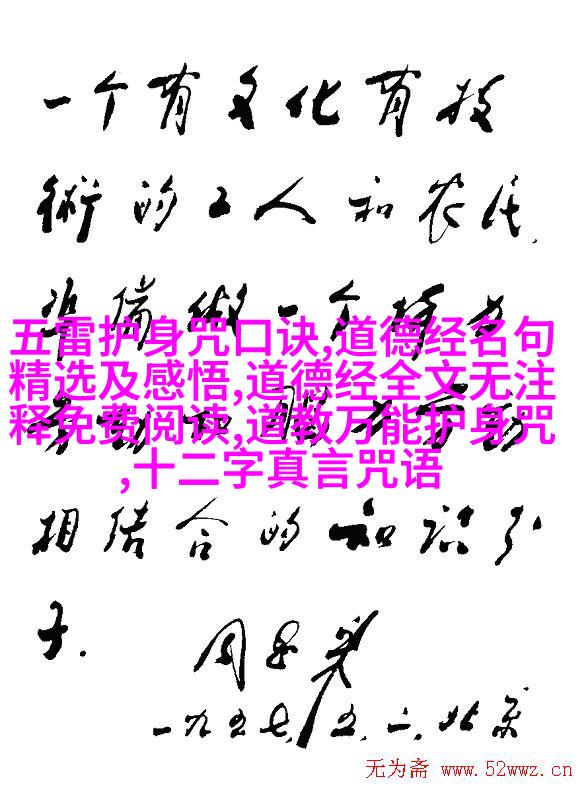 一个有文化有技
術的工人和农民,
準备做一个
五雷护身咒口诀,道德经名句
精选及感悟,道德经全文无注
释免费阅读,道教万能护身咒
,十二字真言咒语
相结合的知识分
子. 周恩来
一九五七,五,一,北京
无为斋 www.52wwz.cn